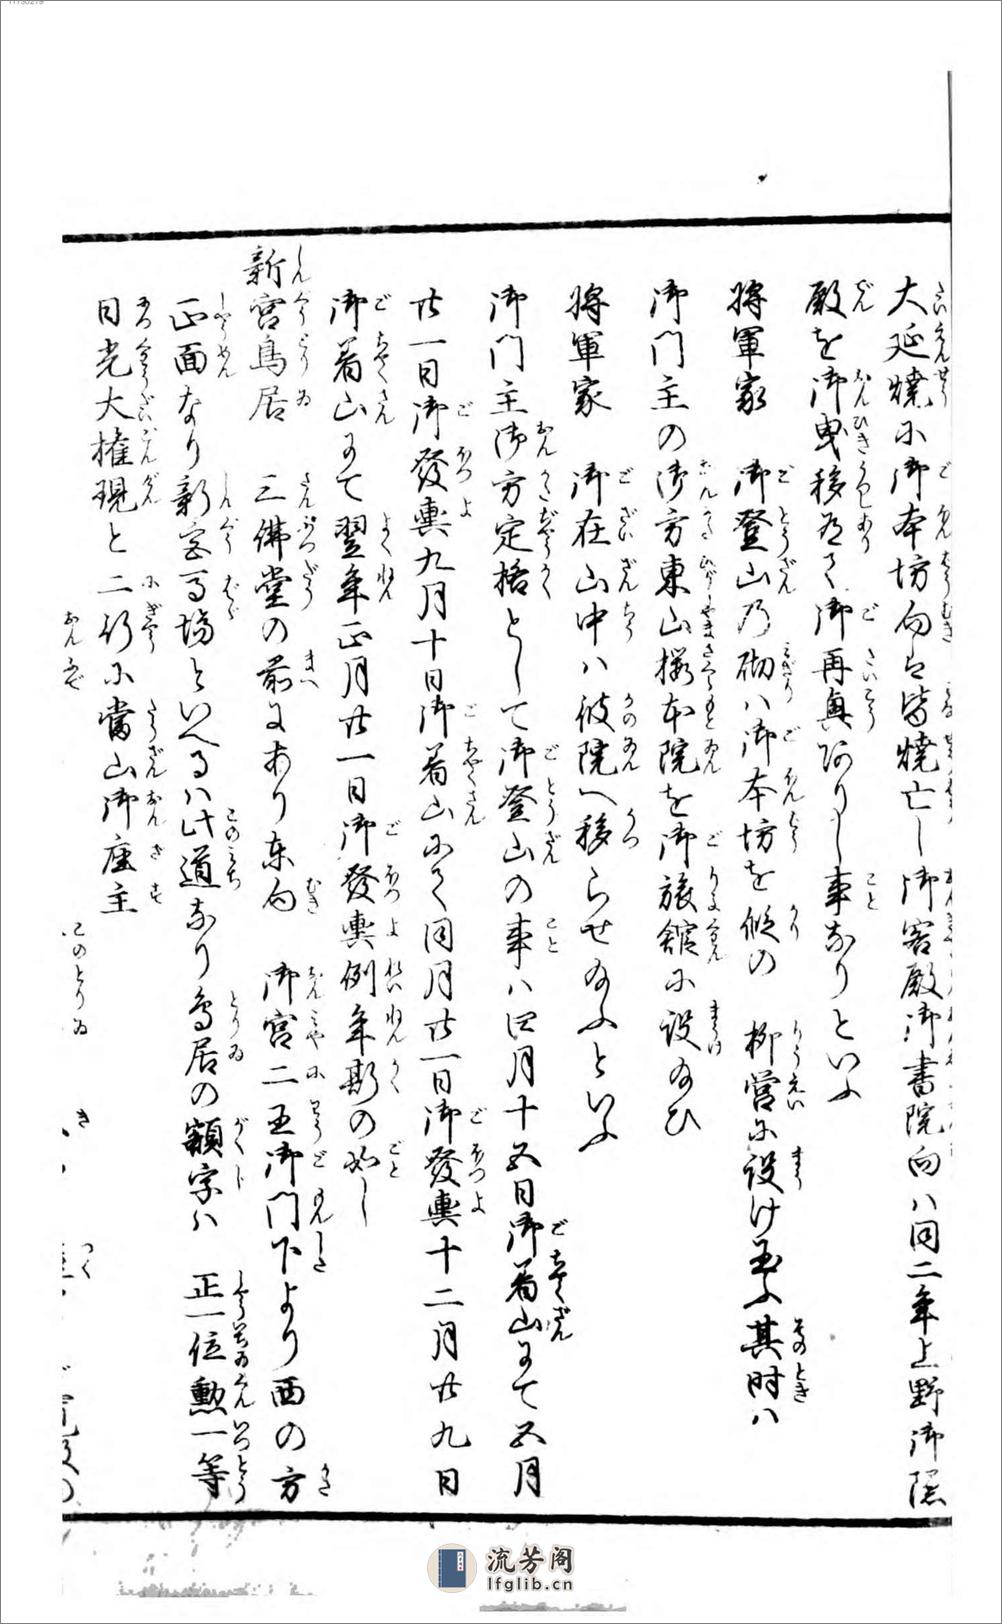 大延燒に御本坊向は皆燒亡し御客殿御書院向ハ同二年上野御隱
殿を御曳移有て御再興ありし事なりといふ
將軍家　御登山乃砌ハ御本坊を假の　柳営に設け玉ふ其時ハ
御門主の御方東山櫻本院を御旅舘に設給ひ
將軍家　御在山中ハ彼院へ移らせ給ふといふ
御門主御方定格として御登山の事ハ四月十五日御着山にて五月
廿一日御發輿九月十日御着山にて同月廿一日御發輿十二月廿九日
御着山にて翌年正月廿一日御發輿例年斯の如し
新宮鳥居　三佛堂の前にあり東向　御宮二王御門下より西の方
正面なり新宮馬場といへるハ此道なり鳥居の額字ハ　正一位勲一等
日光大権現と二行に當山御座主
流芳阁
lfglib.cn